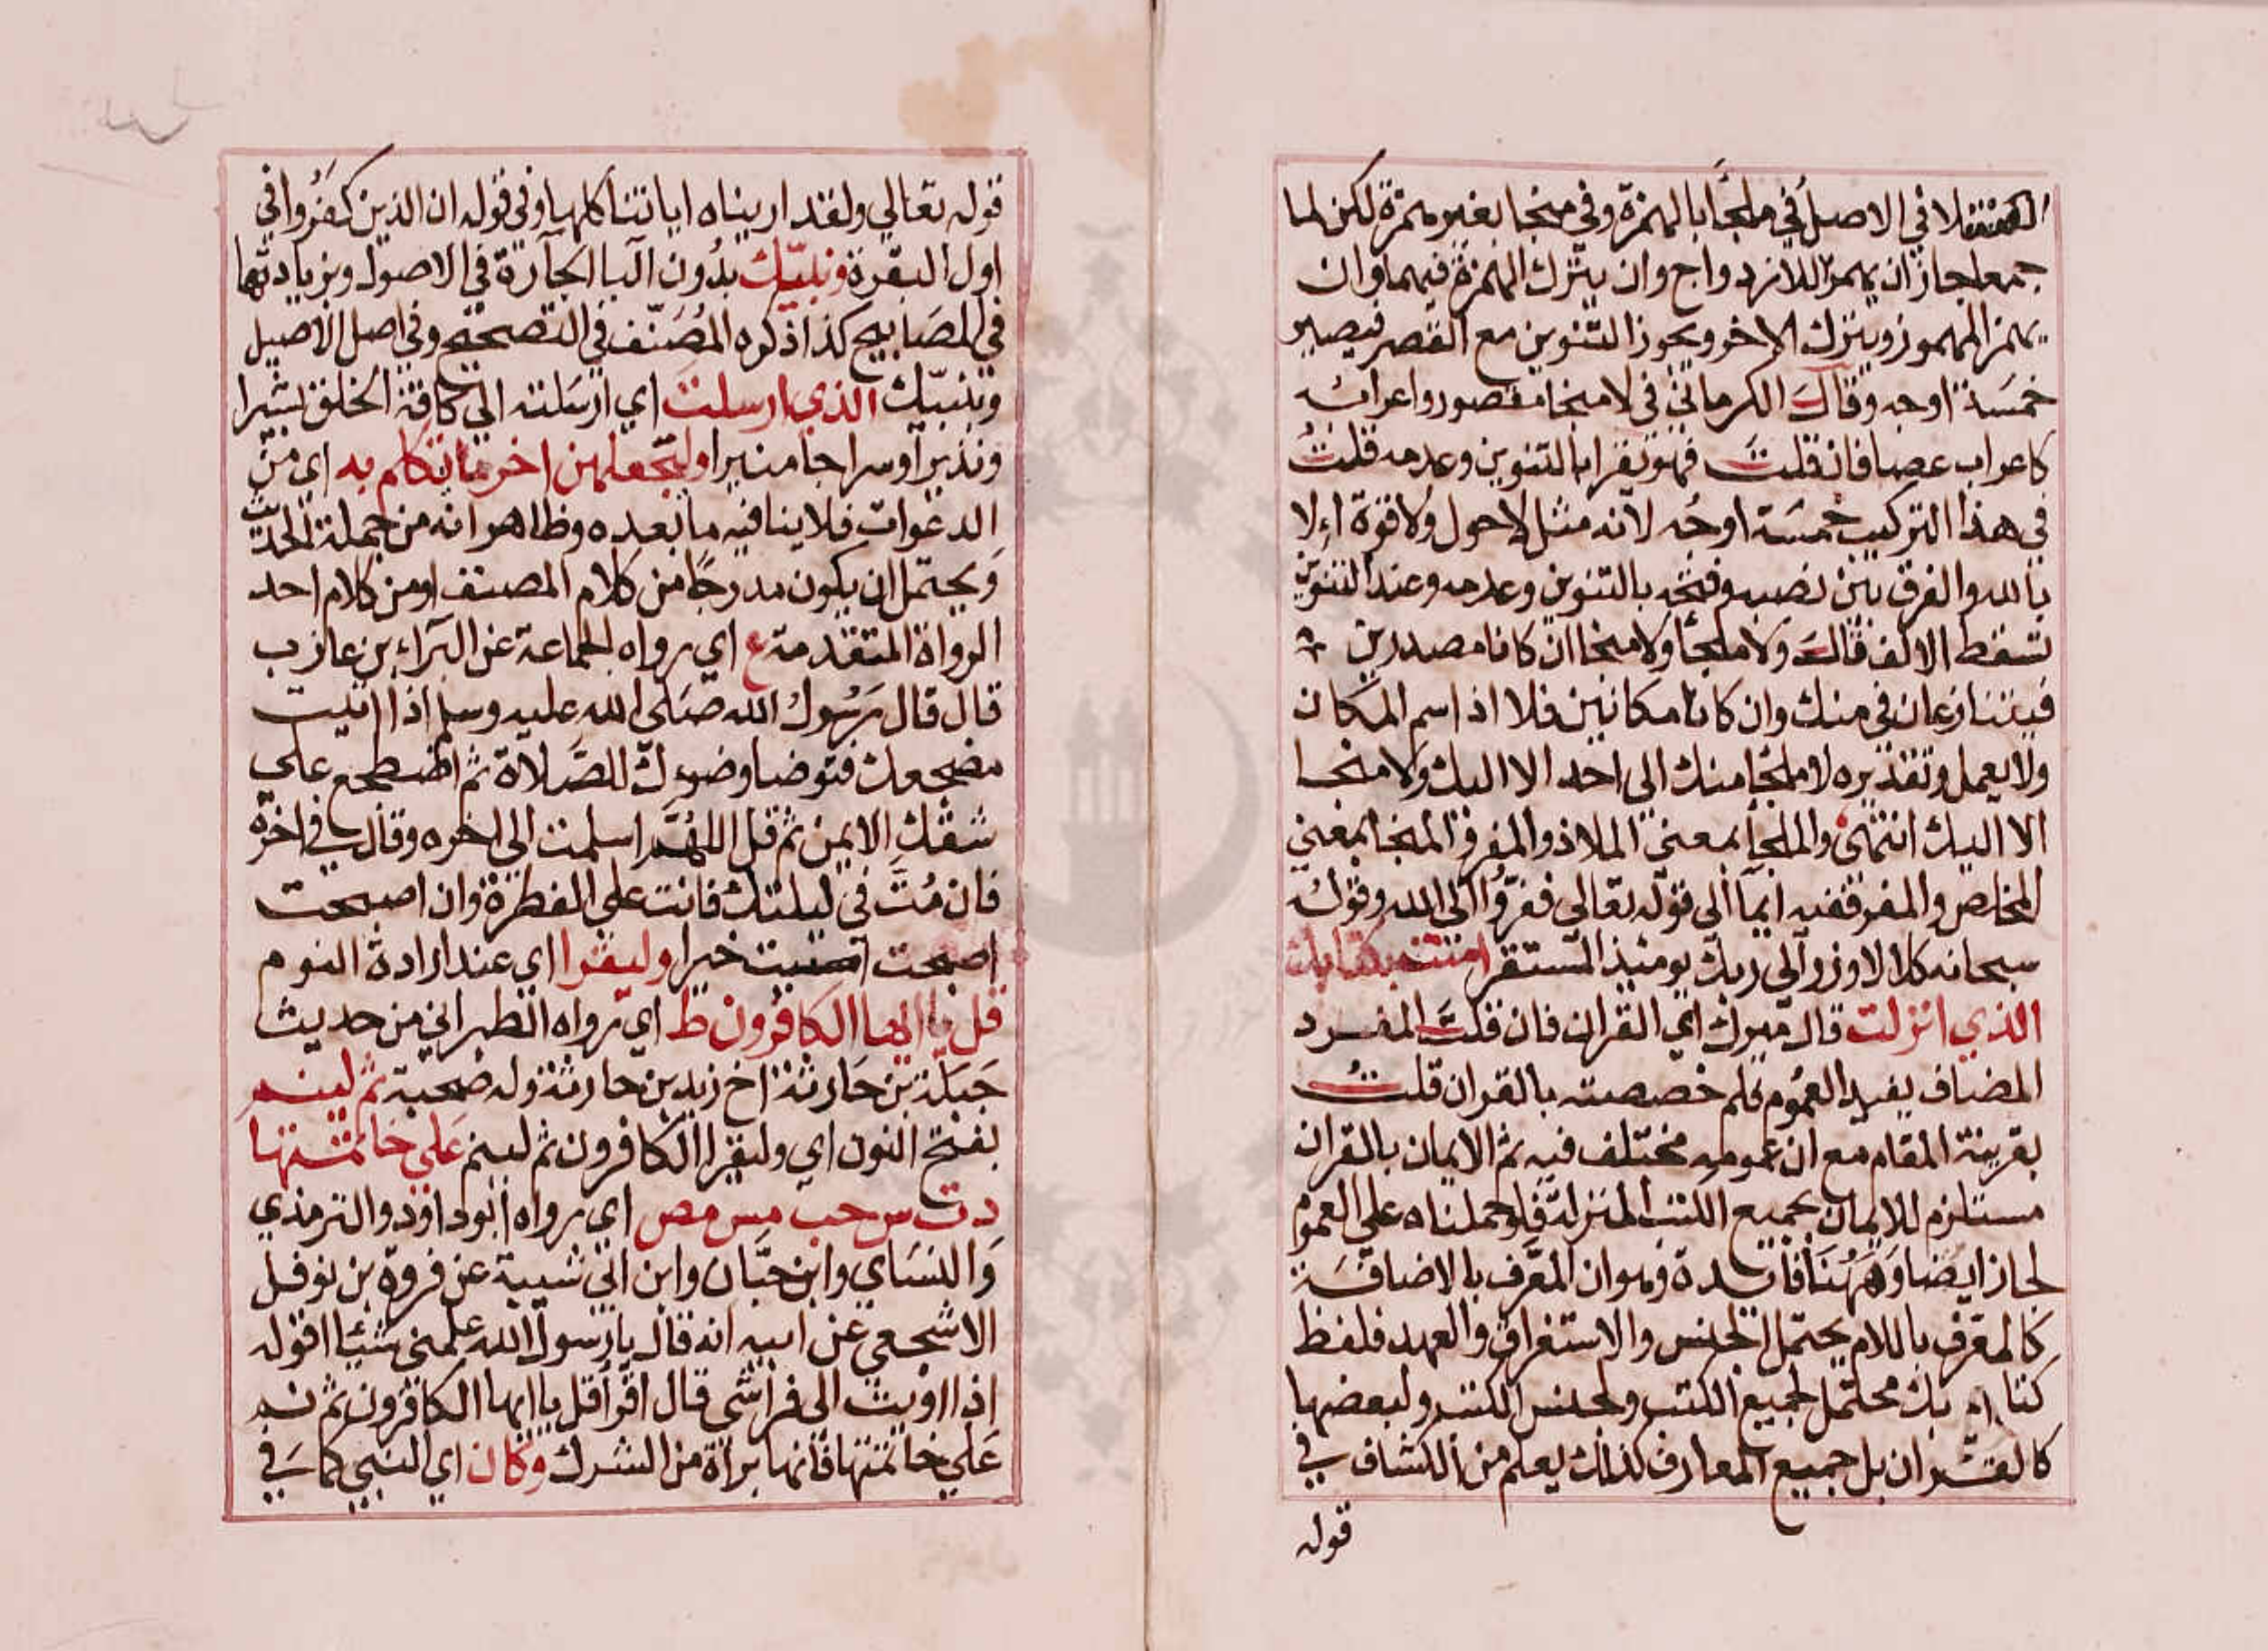 لا في الاصل في ملجأ بالهمزة وفي منجا بغير همزة لكن لما
جمعا جاز ان يهمز اللازدواج وان يترك الهمزة فيهما وان
يهمز المهموز ويترك الاخر ويجوز التنوين مع القصر فيصير
خمسة اوجه وقال الكرماني في لا منجا مقصور واعرابه
كاعراب عصا فان قلت فهو يقرا بالتنوين وعدمه قلت
في هذا التركيب خمسة اوجه لانه مثل لا حول ولا قوة الا
بالله والفرق بين نصبه وفتحه بالتنوين وعدمه وعند التنوين
تسقط الالف قال ولا ملجأ ولا منجا ان كانا مصدرين
فيتنازعان في منك وان كانا مكانين فلا اذ اسم المكان
ولا يعمل وتقديره لا ملجأ منك الى احد الا اليك ولا منجا
الا اليك انتهى والملجأ بمعنى الملاذ والمفر والمنجا بمعنى
المخلص والمفر ففيه ايما الى قوله تعالى ففروا الى الله وقوله
سبحانه كلا لا وزر الى ربك يومئذ المستقر امنت بكتابك
الذي انزلت قال ميرك اي القران فان قلت المفرد
المضاف يفيد العموم فلم خصصته بالقران قلت
بقرينة المقام مع ان عمومه مختلف فيه ثم الايمان بالقران
مستلزم للايمان بجميع الكتب المنزلة فلو حملناه على العموم
لجاز ايضا وههنا فائدة وهو ان المعرف بالاضافة
كالمعرف باللام يحتمل الجنس والاستغراق والعهد فلفظ
كتابك محتمل لجميع الكتب ولجنس الكتب ولبعضها
كالقران بل جميع المعارف كذلك يعلم من الكشاف في
قوله
قوله تعالي ولقد اريناه اياتنا كلها وفي قوله ان الذين كفروا في
اول البقرة ونبيّك بدون البا الجارة في الاصول وبزيادتها
في المصابيح كذا ذكره المصنّف في التصحيح وفي اصل الاصيل
وبنبيّك الذي ارسلت اي ارسلته الي كافة الخلق بشيرا
ونذيرا وسراجا منيرا وليجعلهن اخر ما يتكلم به اي من
الدعوات فلا ينافيه ما بعده وظاهر انه من جملة الحديث
ويحتمل ان يكون مدرجا من كلام المصنف او من كلام احد
الرواة المتقدمة ع اي رواه الجماعة عن البراء بن عازب
قال قال رسول الله صلى الله عليه وسلم اذا اتيت
مضجعك فتوضا وضوءك للصلاة ثم اضطجع علي
شقك الايمن ثم قل اللهم اسلمت الى اخره وقال في اخره
فان مت في ليلتك فانت على الفطرة وان اصبحت
اصبحت خيرا وليقرا اي عند ارادة النوم
قل يا ايها الكافرون ط اي رواه الطبراني من حديث
جبلة بن حارثة اخ زيد بن حارثة وله صحبة ثم لينم
بفتح النون اي وليقرا الكافرون ثم لينم علي خاتمتها
د ت س حب مس مص اي رواه ابو داود والترمذي
والنساي وابن حبّان وابن ابي شيبة عن فروة بن نوفل
الاشجعي عن ابيه انه قال يا رسول الله علمني شيئا اقوله
اذا اويت الى فراشي قال اقرأ قل يا ايها الكافرون ثم نم
علي خاتمتها فانها براة من الشرك وكان اي النبي كما في